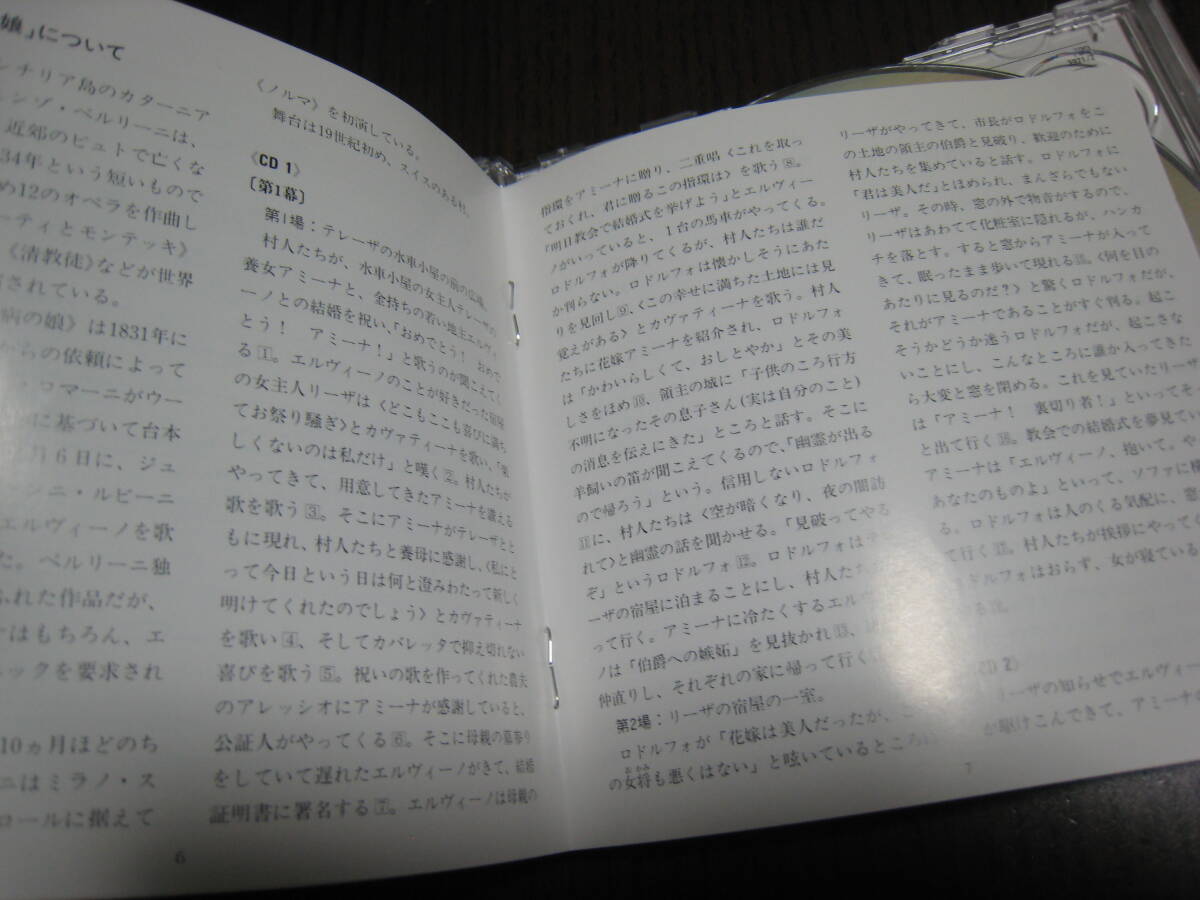 娘」について
ンチリア島のカターニア
ェンゾ・ベルリーニは、
近郊のピュトで亡くな
34年という短いもので
め12のオペラを作曲し
ーティとモンテッキ》
《清教徒》などが世界
演されている。
病の娘》は1831年に
からの依頼によって
・ロマーニがウー
に基づいて台本
月6日に、ジュ
ニ・ルビーニ
エルヴィーノを歌
た。ベルリーニ独
ふれた作品だが、
はもちろん、エ
ニックを要求され
10ヵ月ほどのち
ニはミラノ・ス
ロールに据えて
《ノルマ》を初演している。
舞台は19世紀初め、スイスのある村。
《CD 1》
〔第1幕〕
第1場：テレーザの水車小屋の前の広場。
村人たちが、水車小屋の女主人テレーザの
養女アミーナと、金持ちの若い地主エルヴィ
ーノとの結婚を祝い、「おめでとう！　おめで
とう！　アミーナ！」と歌うのが聞こえてく
る1。エルヴィーノのことが好きだった宿屋
の女主人リーザは〈どこもここも喜びに満ち
てお祭り騒ぎ〉とカヴァティーナを歌い、「楽
しくないのは私だけ」と嘆く2。村人たちが
やってきて、用意してきたアミーナを讃える
歌を歌う3。そこにアミーナがテレーザとと
もに現れ、村人たちと養母に感謝し、〈私にと
って今日という日は何と澄みわたって新しく
明けてくれたのでしょう〉とカヴァティーナ
を歌い4、そしてカバレッタで抑え切れない
喜びを歌う5。祝いの歌を作ってくれた農夫
のアレッシオにアミーナが感謝していると、
公証人がやってくる6。そこに母親の墓参り
をしていて遅れたエルヴィーノがきて、結婚
証明書に署名する7。エルヴィーノは母親の
6
指環をアミーナに贈り、二重唱〈これを取っ
ておくれ、君に贈るこの指環は〉を歌う8。
「明日教会で結婚式を挙げよう」とエルヴィー
ノがいっていると、1台の馬車がやってくる。
ロドルフォが降りてくるが、村人たちは誰だ
か判らない。ロドルフォは懐かしそうにあた
りを見回し9、〈この幸せに満ちた土地には見
覚えがある〉とカヴァティーナを歌う。村人
たちに花嫁アミーナを紹介され、ロドルフォ
は「かわいらしくて、おしとやか」とその美
しさをほめ10、領主の城に「子供のころ行方
不明になったその息子さん(実は自分のこと)
の消息を伝えにきた」ところと話す。そこに
羊飼いの笛が聞こえてくるので、「幽霊が出る
ので帰ろう」という。信用しないロドルフォ
11に、村人たちは〈空が暗くなり、夜の闇訪
れて〉と幽霊の話を聞かせる。「見破ってやる
ぞ」というロドルフォ12。ロドルフォは
ーザの宿屋に泊まることにし、村人た
って行く。アミーナに冷たくするエル
ノは「伯爵への嫉妬」を見抜かれ13、
仲直りし、それぞれの家に帰って行く
第2場：リーザの宿屋の一室。
ロドルフォが「花嫁は美人だったが、こ
の女将も悪くはない」と呟いているところに
おかみ
リーザがやってきて、市長がロドルフォをこ
の土地の領主の伯爵と見破り、歓迎のために
村人たちを集めていると話す。ロドルフォに
「君は美人だ」とほめられ、まんざらでもない
リーザ。その時、窓の外で物音がするので、
リーザはあわてて化粧室に隠れるが、ハンカ
チを落とす。すると窓からアミーナが入って
きて、眠ったまま歩いて現れる15。〈何を目の
あたりに見るのだ？〉と驚くロドルフォだが、
それがアミーナであることがすぐ判る。起こ
そうかどうか迷うロドルフォだが、起こさな
いことにし、こんなところに誰か入ってきた
ら大変と窓を閉める。これを見ていたリーザ
は「アミーナ！　裏切り者！」といってそ
と出て行く16。教会での結婚式を夢見てか
アミーナは「エルヴィーノ、抱いて。や
あなたのものよ」といって、ソファに横
る。ロドルフォは人のくる気配に、窓
て行く17。村人たちが挨拶にやってく
ドルフォはおらず、女が寝ている
いる18。
CD 2》
リーザの知らせでエルヴィー
が駆けこんできて、アミーナ
7